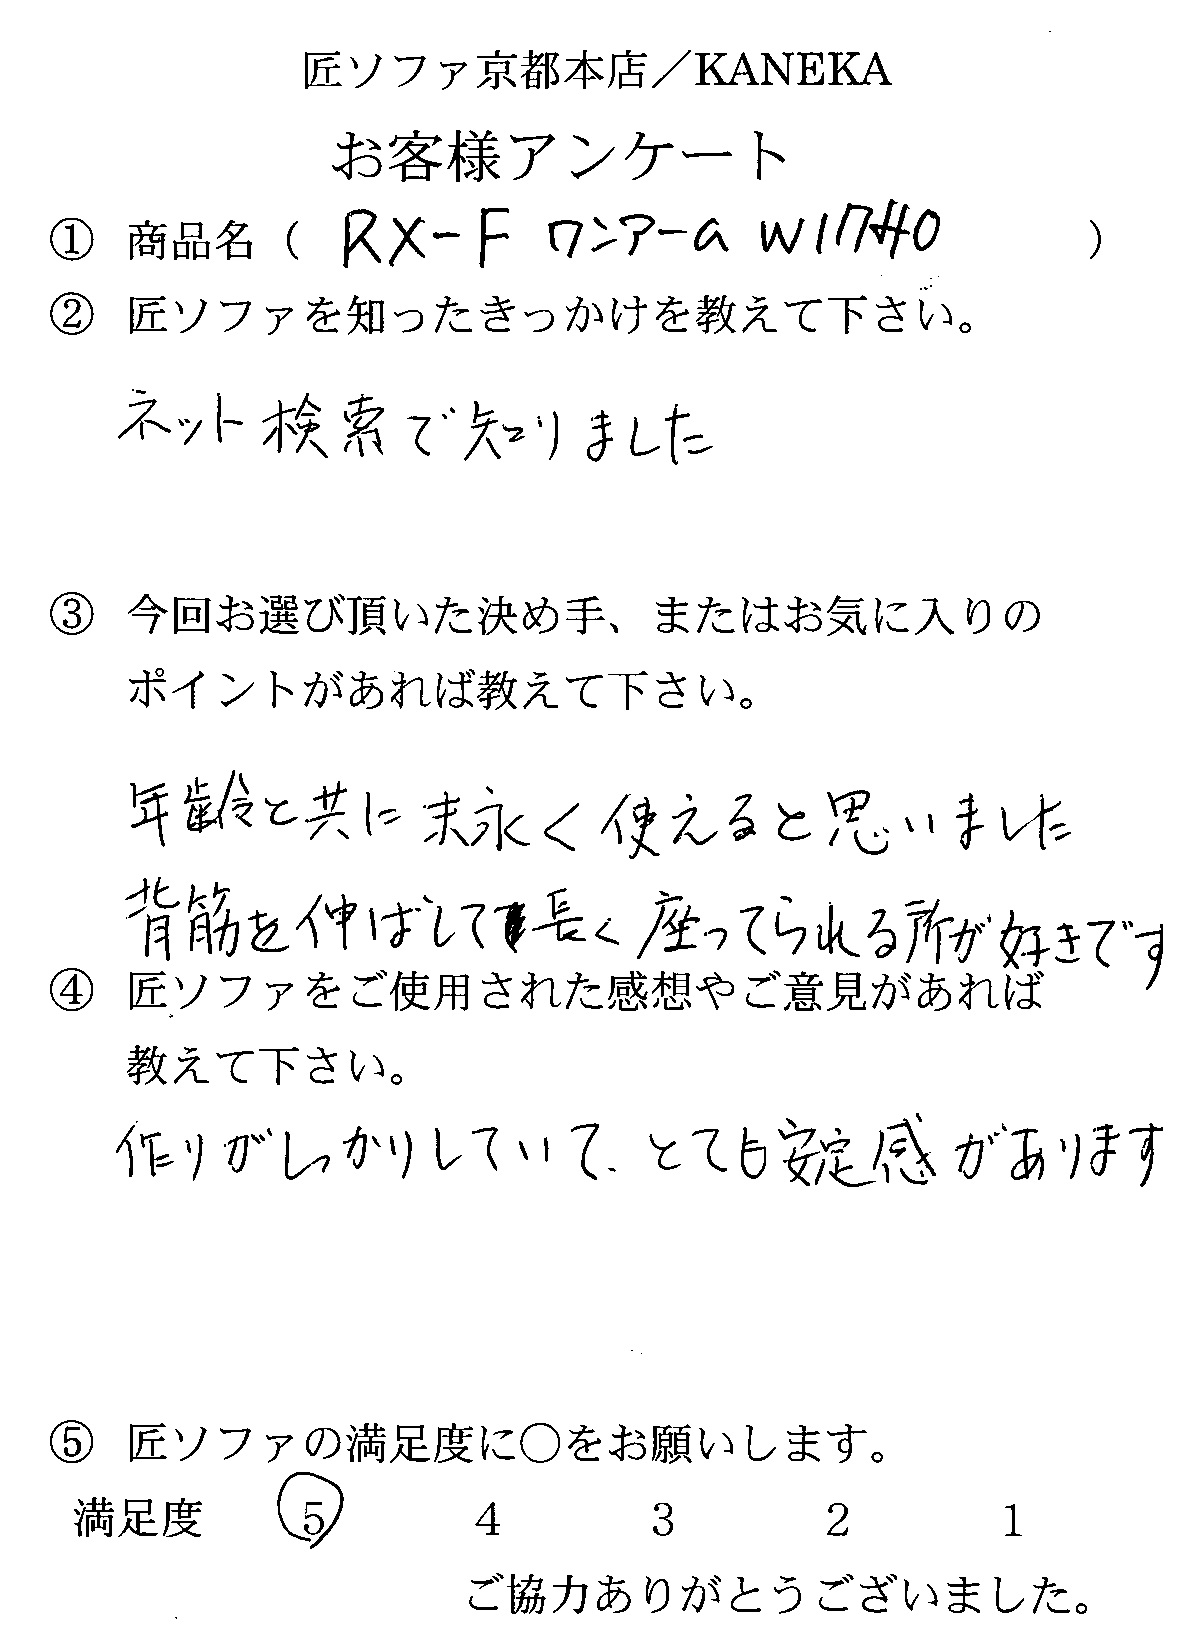 匠ソファ京都本店／KANEKA
お客様アンケート
① 商品名（ RX-F ワンアーム W1740 ）
② 匠ソファを知ったきっかけを教えて下さい。
ネット検索で知りました
③ 今回お選び頂いた決め手、またはお気に入りの
ポイントがあれば教えて下さい。
年齢と共に末永く使えると思いました
背筋を伸ばして長く座ってられる所が好きです
④ 匠ソファをご使用された感想やご意見があれば
教えて下さい。
作りがしっかりしていて、とても安定感があります
⑤ 匠ソファの満足度に○をお願いします。
満足度 5 4 3 2 1
ご協力ありがとうございました。